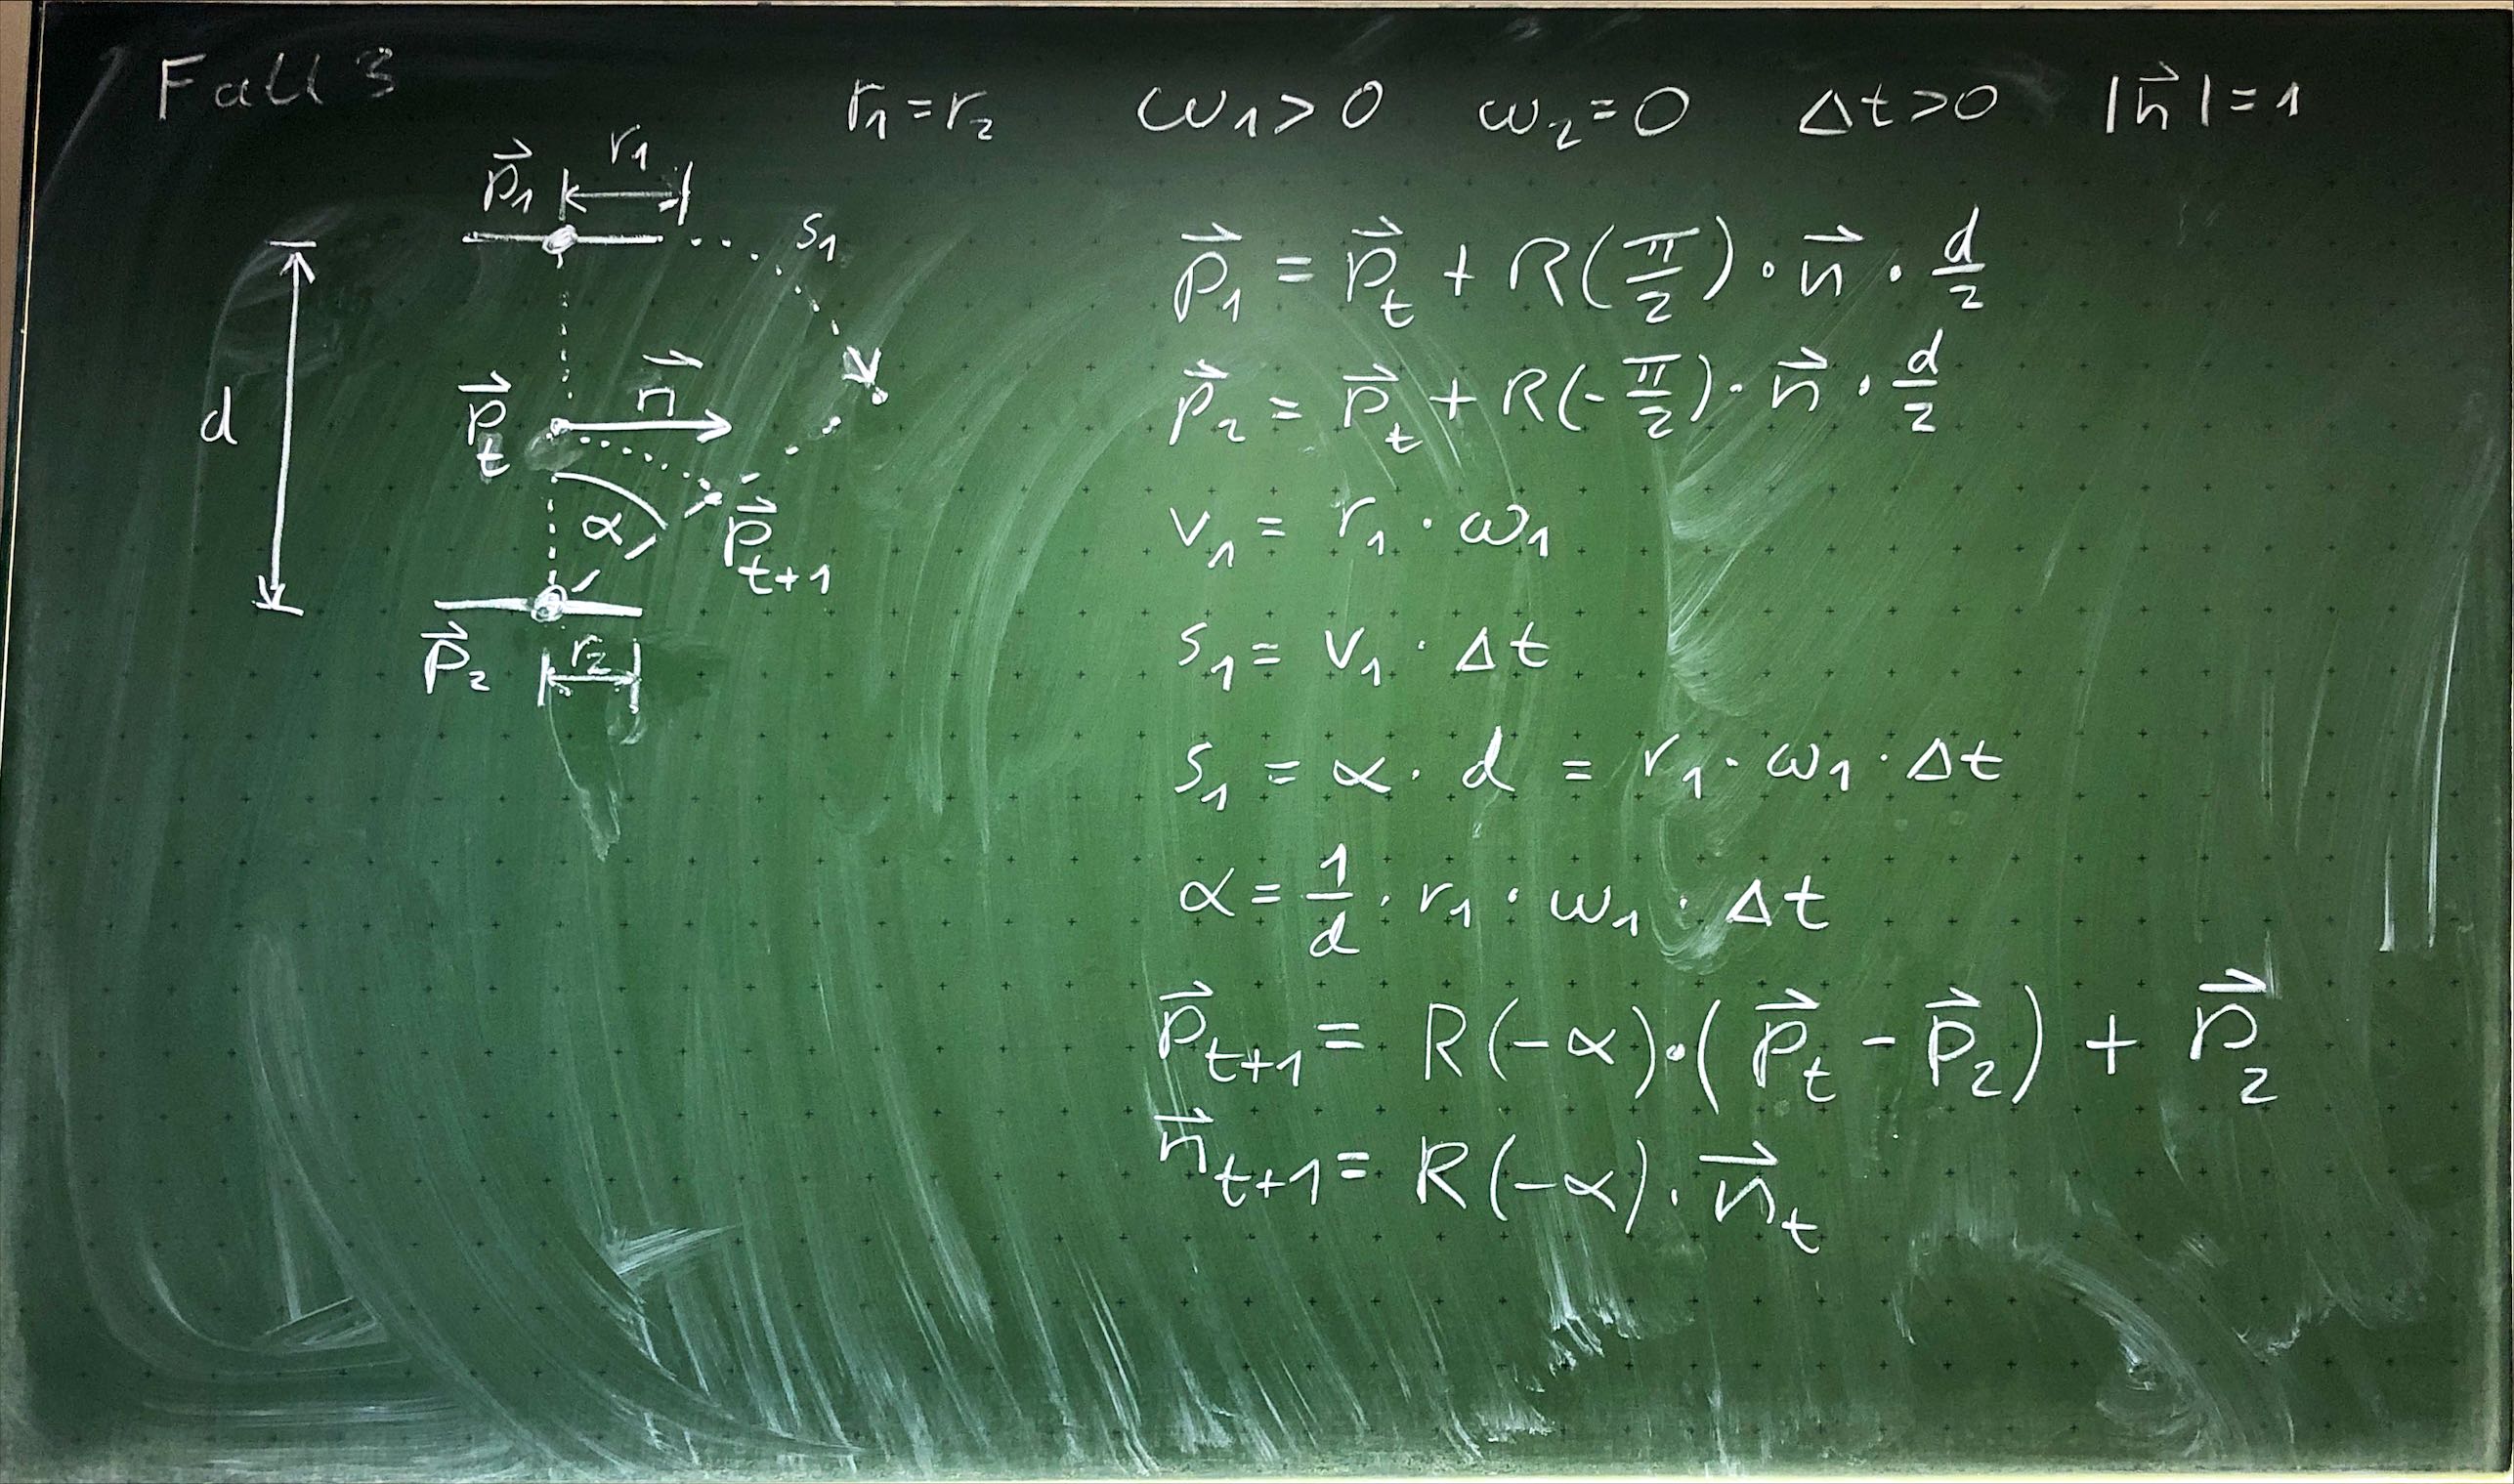 Fall 3
r₁ = r₂   ω₁ > 0   ω₂ = 0   Δt > 0   |n⃗| = 1
p⃗₁   r₁
s₁
d
p⃗_t   n⃗
α   p⃗_{t+1}
p⃗₂   r₂
p⃗₁ = p⃗_t + R(π/2) · n⃗ · d/2
p⃗₂ = p⃗_t + R(-π/2) · n⃗ · d/2
v₁ = r₁ · ω₁
s₁ = v₁ · Δt
s₁ = α · d = r₁ · ω₁ · Δt
α = 1/d · r₁ · ω₁ · Δt
p⃗_{t+1} = R(-α) · (p⃗_t - p⃗₂) + p⃗₂
n⃗_{t+1} = R(-α) · n⃗_t